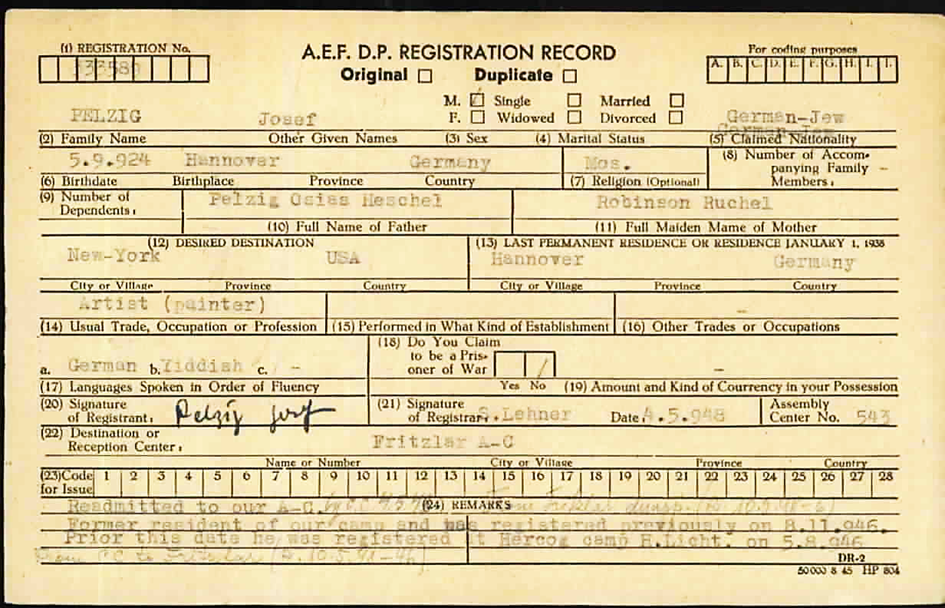 (1) REGISTRATION No.
A.E.F. D.P. REGISTRATION RECORD
For coding purposes
Original Duplicate
A. B. C. D. E. F. G. H. I. I.
M. Single Married
PELZIG Josef F. Widowed Divorced German-Jew
German-Jew
(2) Family Name Other Given Names (3) Sex (4) Marital Status (5) Claimed Nationality
5.9.924 Hannover Germany Mos. (8) Number of Accom-
panying Family -
(6) Birthdate Birthplace Province Country (7) Religion (Optional) Members:
(9) Number of Dependents: Pelzig Osias Heschel Robinson Ruchel
(10) Full Name of Father (11) Full Maiden Mame of Mother
(12) DESIRED DESTINATION (13) LAST PERMANENT RESIDENCE OR RESIDENCE JANUARY 1, 1938
New-York USA Hannover Germany
City or Village Province Country City or Village Province Country
Artist (painter) -
(14) Usual Trade, Occupation or Profession (15) Performed in What Kind of Establishment (16) Other Trades or Occupations
(18) Do You Claim
to be a Pris-
a. German b. Yiddish c. - oner of War / -
(17) Languages Spoken in Order of Fluency Yes No (19) Amount and Kind of Courrency in your Possession
(20) Signature of Registrant: Pelzig Josef (21) Signature of Registrar: S.Lehner Date: 4.5.948 Assembly Center No. 543
(22) Destination or
Reception Center: Fritzlar A-C
Name or Number City or Village Province Country
(23) Code for Issue 1 2 3 4 5 6 7 8 9 10 11 12 13 14 15 16 17 18 19 20 21 22 23 24 25 26 27 28
Readmitted to our A-C. by CC (24) REMARKS
Former resident of our camp and was registered previously on 8.11.946.
Prior this date he was registered at Hercog camp H.Licht. on 5.8.946
from CC to Fritzlar
DR-2
50000 8 45 HP 804